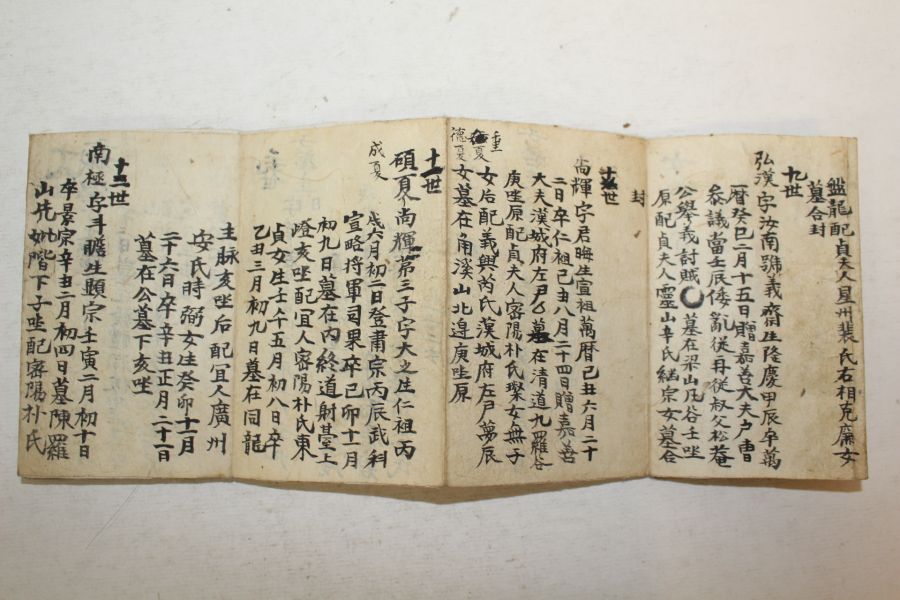 監龍配貞夫人星州裴氏右相克廉女
墓合封
九世
弘漢字汝南號義齋生隆慶甲辰卒萬
曆癸巳二月十五日贈嘉善大夫戶曹
叅議當壬辰倭亂從再從叔父松菴
公擧義討賊〇墓在梁山凡谷壬坐
原配貞夫人靈山辛氏継宗女墓合
封
十世
尙輝字君晦生宣祖萬曆己丑六月二十
二日卒仁祖己丑八月二十四日贈嘉善
大夫漢城府左尹公墓在淸道九羅谷
庚坐原配貞夫人密陽朴氏璨女無子
女后配義興芮氏漢城府左尹夢辰
女墓在角溪山北邊庚坐原
重夏
德夏
十一世
碩夏尙輝第三子字大之生仁祖丙
成夏
戌六月初二日登肅宗丙辰武科
宣略將軍司果卒己卯十一月
初九日墓在內終道射臺上
嶝亥坐配宜人密陽朴氏東
貞女生壬午五月初八日卒
乙丑三月初九日墓在同龍
主脉亥坐后配宜人廣州
安氏時弼女生癸卯十一月
二十六日卒辛丑正月二十一日
墓在公墓下亥坐
十二世
南極字斗瞻生顯宗壬寅二月初十日
卒景宗辛丑二月初四日墓陳羅
山先妣階下子坐配密陽朴氏